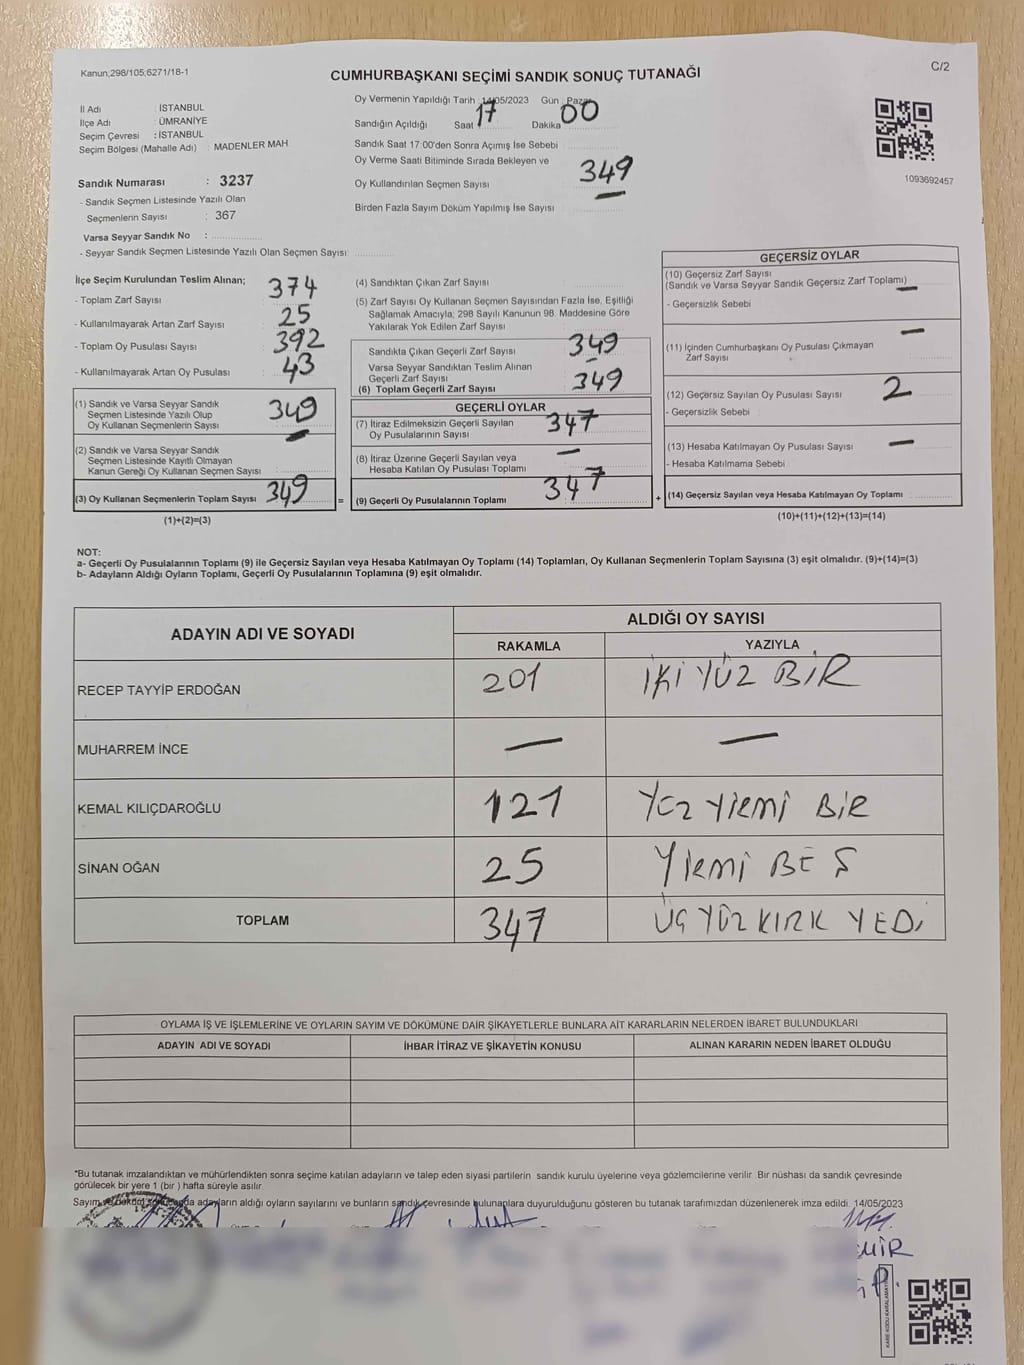 Kanun;298/105;6271/18-1
CUMHURBAŞKANI SEÇİMİ SANDIK SONUÇ TUTANAĞI
C/2
İl Adı : İSTANBUL
İlçe Adı : ÜMRANİYE
Seçim Çevresi : İSTANBUL
Seçim Bölgesi (Mahalle Adı) : MADENLER MAH.
Sandık Numarası : 3237
- Sandık Seçmen Listesinde Yazılı Olan
Seçmenlerin Sayısı : 367
Varsa Seyyar Sandık No :
- Seyyar Sandık Seçmen Listesinde Yazılı Olan Seçmen Sayısı:
Oy Vermenin Yapıldığı Tarih : 14/05/2023 Gün : Pazar
Sandığın Açıldığı Saat 17 Dakika 00
Sandık Saat 17:00'den Sonra Açımış İse Sebebi
Oy Verme Saati Bitiminde Sırada Bekleyen ve
Oy Kullandırılan Seçmen Sayısı 349
Birden Fazla Sayım Döküm Yapılmış İse Sayısı
1093692457
İlçe Seçim Kurulundan Teslim Alınan;
- Toplam Zarf Sayısı : 374
- Kullanılmayarak Artan Zarf Sayısı : 25
- Toplam Oy Pusulası Sayısı : 392
- Kullanılmayarak Artan Oy Pusulası : 43
(1) Sandık ve Varsa Seyyar Sandık
Seçmen Listesinde Yazılı Olup
Oy Kullanan Seçmenlerin Sayısı : 349
(2) Sandık ve Varsa Seyyar Sandık
Seçmen Listesinde Kayıtlı Olmayan
Kanun Gereği Oy Kullanan Seçmen Sayısı : —
(3) Oy Kullanan Seçmenlerin Toplam Sayısı : 349 =
(1)+(2)=(3)
(4) Sandıktan Çıkan Zarf Sayısı
(5) Zarf Sayısı Oy Kullanan Seçmen Sayısından Fazla İse, Eşitliği
Sağlamak Amacıyla; 298 Sayılı Kanunun 98. Maddesine Göre
Yakılarak Yok Edilen Zarf Sayısı
Sandıkta Çıkan Geçerli Zarf Sayısı 349
Varsa Seyyar Sandıktan Teslim Alınan
Geçerli Zarf Sayısı —
(6) Toplam Geçerli Zarf Sayısı 349
GEÇERLİ OYLAR
(7) İtiraz Edilmeksizin Geçerli Sayılan
Oy Pusulalarının Sayısı 347
(8) İtiraz Üzerine Geçerli Sayılan veya
Hesaba Katılan Oy Pusulası Toplamı —
(9) Geçerli Oy Pusulalarının Toplamı 347 +
GEÇERSİZ OYLAR
(10) Geçersiz Zarf Sayısı
(Sandık ve Varsa Seyyar Sandık Geçersiz Zarf Toplamı) —
- Geçersizlik Sebebi
(11) İçinden Cumhurbaşkanı Oy Pusulası Çıkmayan
Zarf Sayısı —
(12) Geçersiz Sayılan Oy Pusulası Sayısı 2
- Geçersizlik Sebebi
(13) Hesaba Katılmayan Oy Pusulası Sayısı —
- Hesaba Katılmama Sebebi
(14) Geçersiz Sayılan veya Hesaba Katılmayan Oy Toplamı :
(10)+(11)+(12)+(13)=(14)
NOT:
a- Geçerli Oy Pusulalarının Toplamı (9) ile Geçersiz Sayılan veya Hesaba Katılmayan Oy Toplamı (14) Toplamları, Oy Kullanan Seçmenlerin Toplam Sayısına (3) eşit olmalıdır. (9)+(14)=(3)
b- Adayların Aldığı Oyların Toplamı, Geçerli Oy Pusulalarının Toplamına (9) eşit olmalıdır.
ADAYIN ADI VE SOYADI
ALDIĞI OY SAYISI
RAKAMLA YAZIYLA
RECEP TAYYİP ERDOĞAN 201 İKİ YÜZ BİR
MUHARREM İNCE — —
KEMAL KILIÇDAROĞLU 121 YÜZ YİRMİ BİR
SİNAN OĞAN 25 YİRMİ BEŞ
TOPLAM 347 ÜÇ YÜZ KIRK YEDİ
OYLAMA İŞ VE İŞLEMLERİNE VE OYLARIN SAYIM VE DÖKÜMÜNE DAİR ŞİKAYETLERLE BUNLARA AİT KARARLARIN NELERDEN İBARET BULUNDUKLARI
ADAYIN ADI VE SOYADI İHBAR İTİRAZ VE ŞİKAYETİN KONUSU ALINAN KARARIN NEDEN İBARET OLDUĞU
*Bu tutanak imzalandıktan ve mühürlendikten sonra seçime katılan adayların ve talep eden siyasi partilerin sandık kurulu üyelerine veya gözlemcilerine verilir. Bir nüshası da sandık çevresinde
görülecek bir yere 1 (bir ) hafta süreyle asılır.
Sayım ve döküm sonucunda adayların aldığı oyların sayılarını ve bunların sandık çevresinde bulunanlara duyurulduğunu gösteren bu tutanak tarafımızdan düzenlenerek imza edildi. 14/05/2023